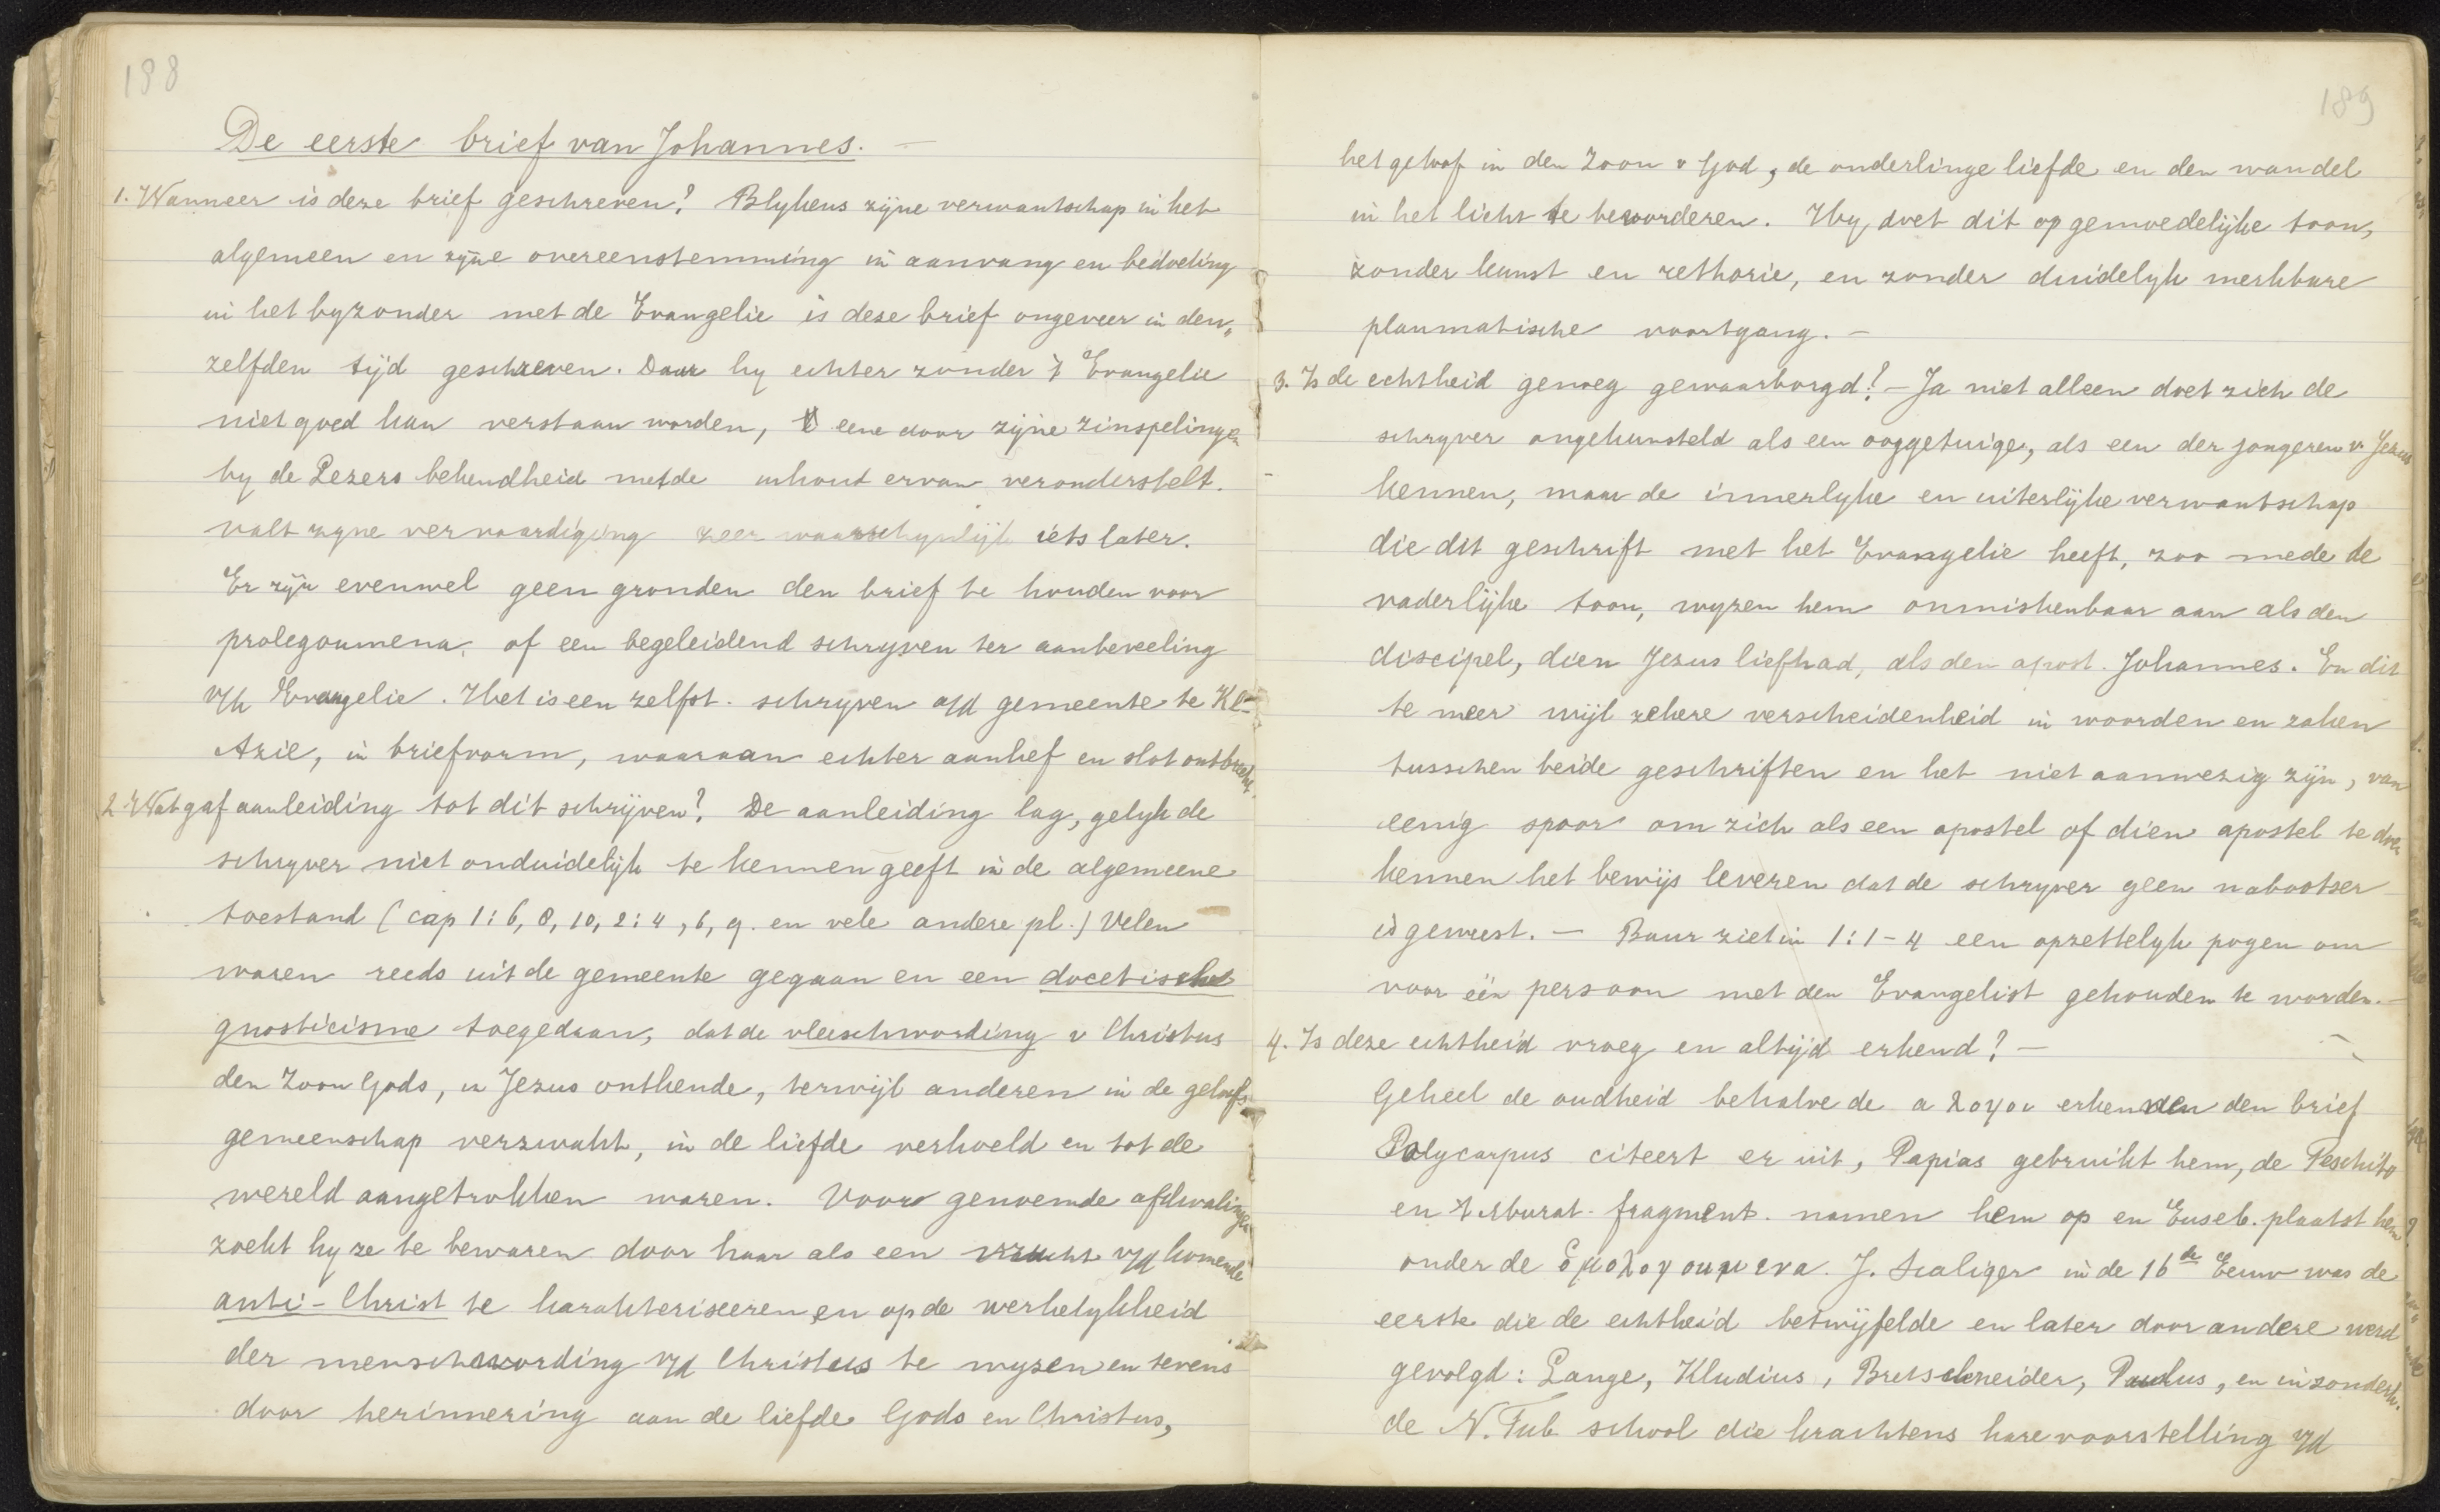 188
De eerste brief van Johannes. —
1. Wanneer is deze brief geschreven? Blykens zijne verwantschap in het
algemeen en zijne overeenstemming in aanvang en bedoeling
in het byzonder met de Evangelie is deze brief ongeveer in den„
zelfden tijd geschreven. Daar hy echter zonder 't Evangelie
niet goed kan verstaan worden, eene door zijne zinspelingen
by de Lezers bekendheid met de inhoud ervan veronderstelt.
valt zyne vervaardiging zeer waarschynlijk iets later.
Er zijn evenwel geen gronden den brief te houden voor
prolegoumena, of een begeleidend schryven ter aanbeveeling
v/h Evangelie. Het is een zelfst. schryven a/d gemeente te Kl–
Azie, in briefvorm, waaraan echter aanhef en slot ontbreekt.
2. Wat gaf aanleiding tot dit schrijven? De aanleiding lag, gelyk de
schryver niet onduidelijk te kennen geeft in de algemeene
toestand (cap 1:6, 8, 10, 2:4, 6, 9. en vele andere pl.) Velen
waren reeds uit de gemeente gegaan en een docetische
gnosticisme toegedaan, dat de vleeschwording v Christus
den Zoon Gods, in Jezus ontkende, terwijl anderen in de geloofs
gemeenschap verzwakt, in de liefde verkoeld en tot de
wereld aangetrokken waren. Voor genoemde afdwalingen
zoekt hy ze te bewaren door haar als een vrucht v/d komende
anti-Christ te karakteriseeren en op de werkelykheid
der menschwording v/d Christus te wyzen en tevens
door herinnering aan de liefde Gods en Christus,
189
het geloof in den Zoon v God, de onderlinge liefde en den wandel
in het licht te bevorderen. Hy doet dit op gemoedelijke toon,
zonder kunst en rethorie, en zonder duidelyk merkbare
planmatische voortgang. —
3. Is de echtheid genoeg gewaarborgd? — Ja niet alleen doet zich de
schryver ongekunsteld als een ooggetuige, als een der jongeren v. Jezus
kennen, maar de innerlyke en uiterlijke verwantschap
die dit geschrift met het Evangelie heeft, zoo mede de
vaderlijke toon, wyzen hem onmiskenbaar aan als den
discipel, dien Jezus liefhad, als den apost. Johannes. En dit
te meer wijl zekere verscheidenheid in woorden en zaken
tusschen beide geschriften en het niet aanwezig zijn, van
eenig spoor om zich als een apostel of dien apostel te doen
kennen het bewijs leveren dat de schryver geen nabootser
is geweest. — Baur ziet in 1:1-4 een opzettelyk pogen om
voor één persoon met den Evangelist gehouden te worden. —
4. Is deze echtheid vroeg en altijd erkend? —
Geheel de oudheid behalve de αλογοι erkenden den brief
Polycarpus citeert er uit, Papias gebruikt hem, de Peschito
en 't Murat. fragment. namen hem op en Euseb. plaatst hem
onder de ὁμολογουμενα. J. Scaliger in de 16de Eeuw was de
eerste die de echtheid betwijfelde en later door andere werd
gevolgd: Lange, Kludius, Bretschneider, Paulus, en inzonderh.
de N. Tub school die krachtens hare voorstelling v/d